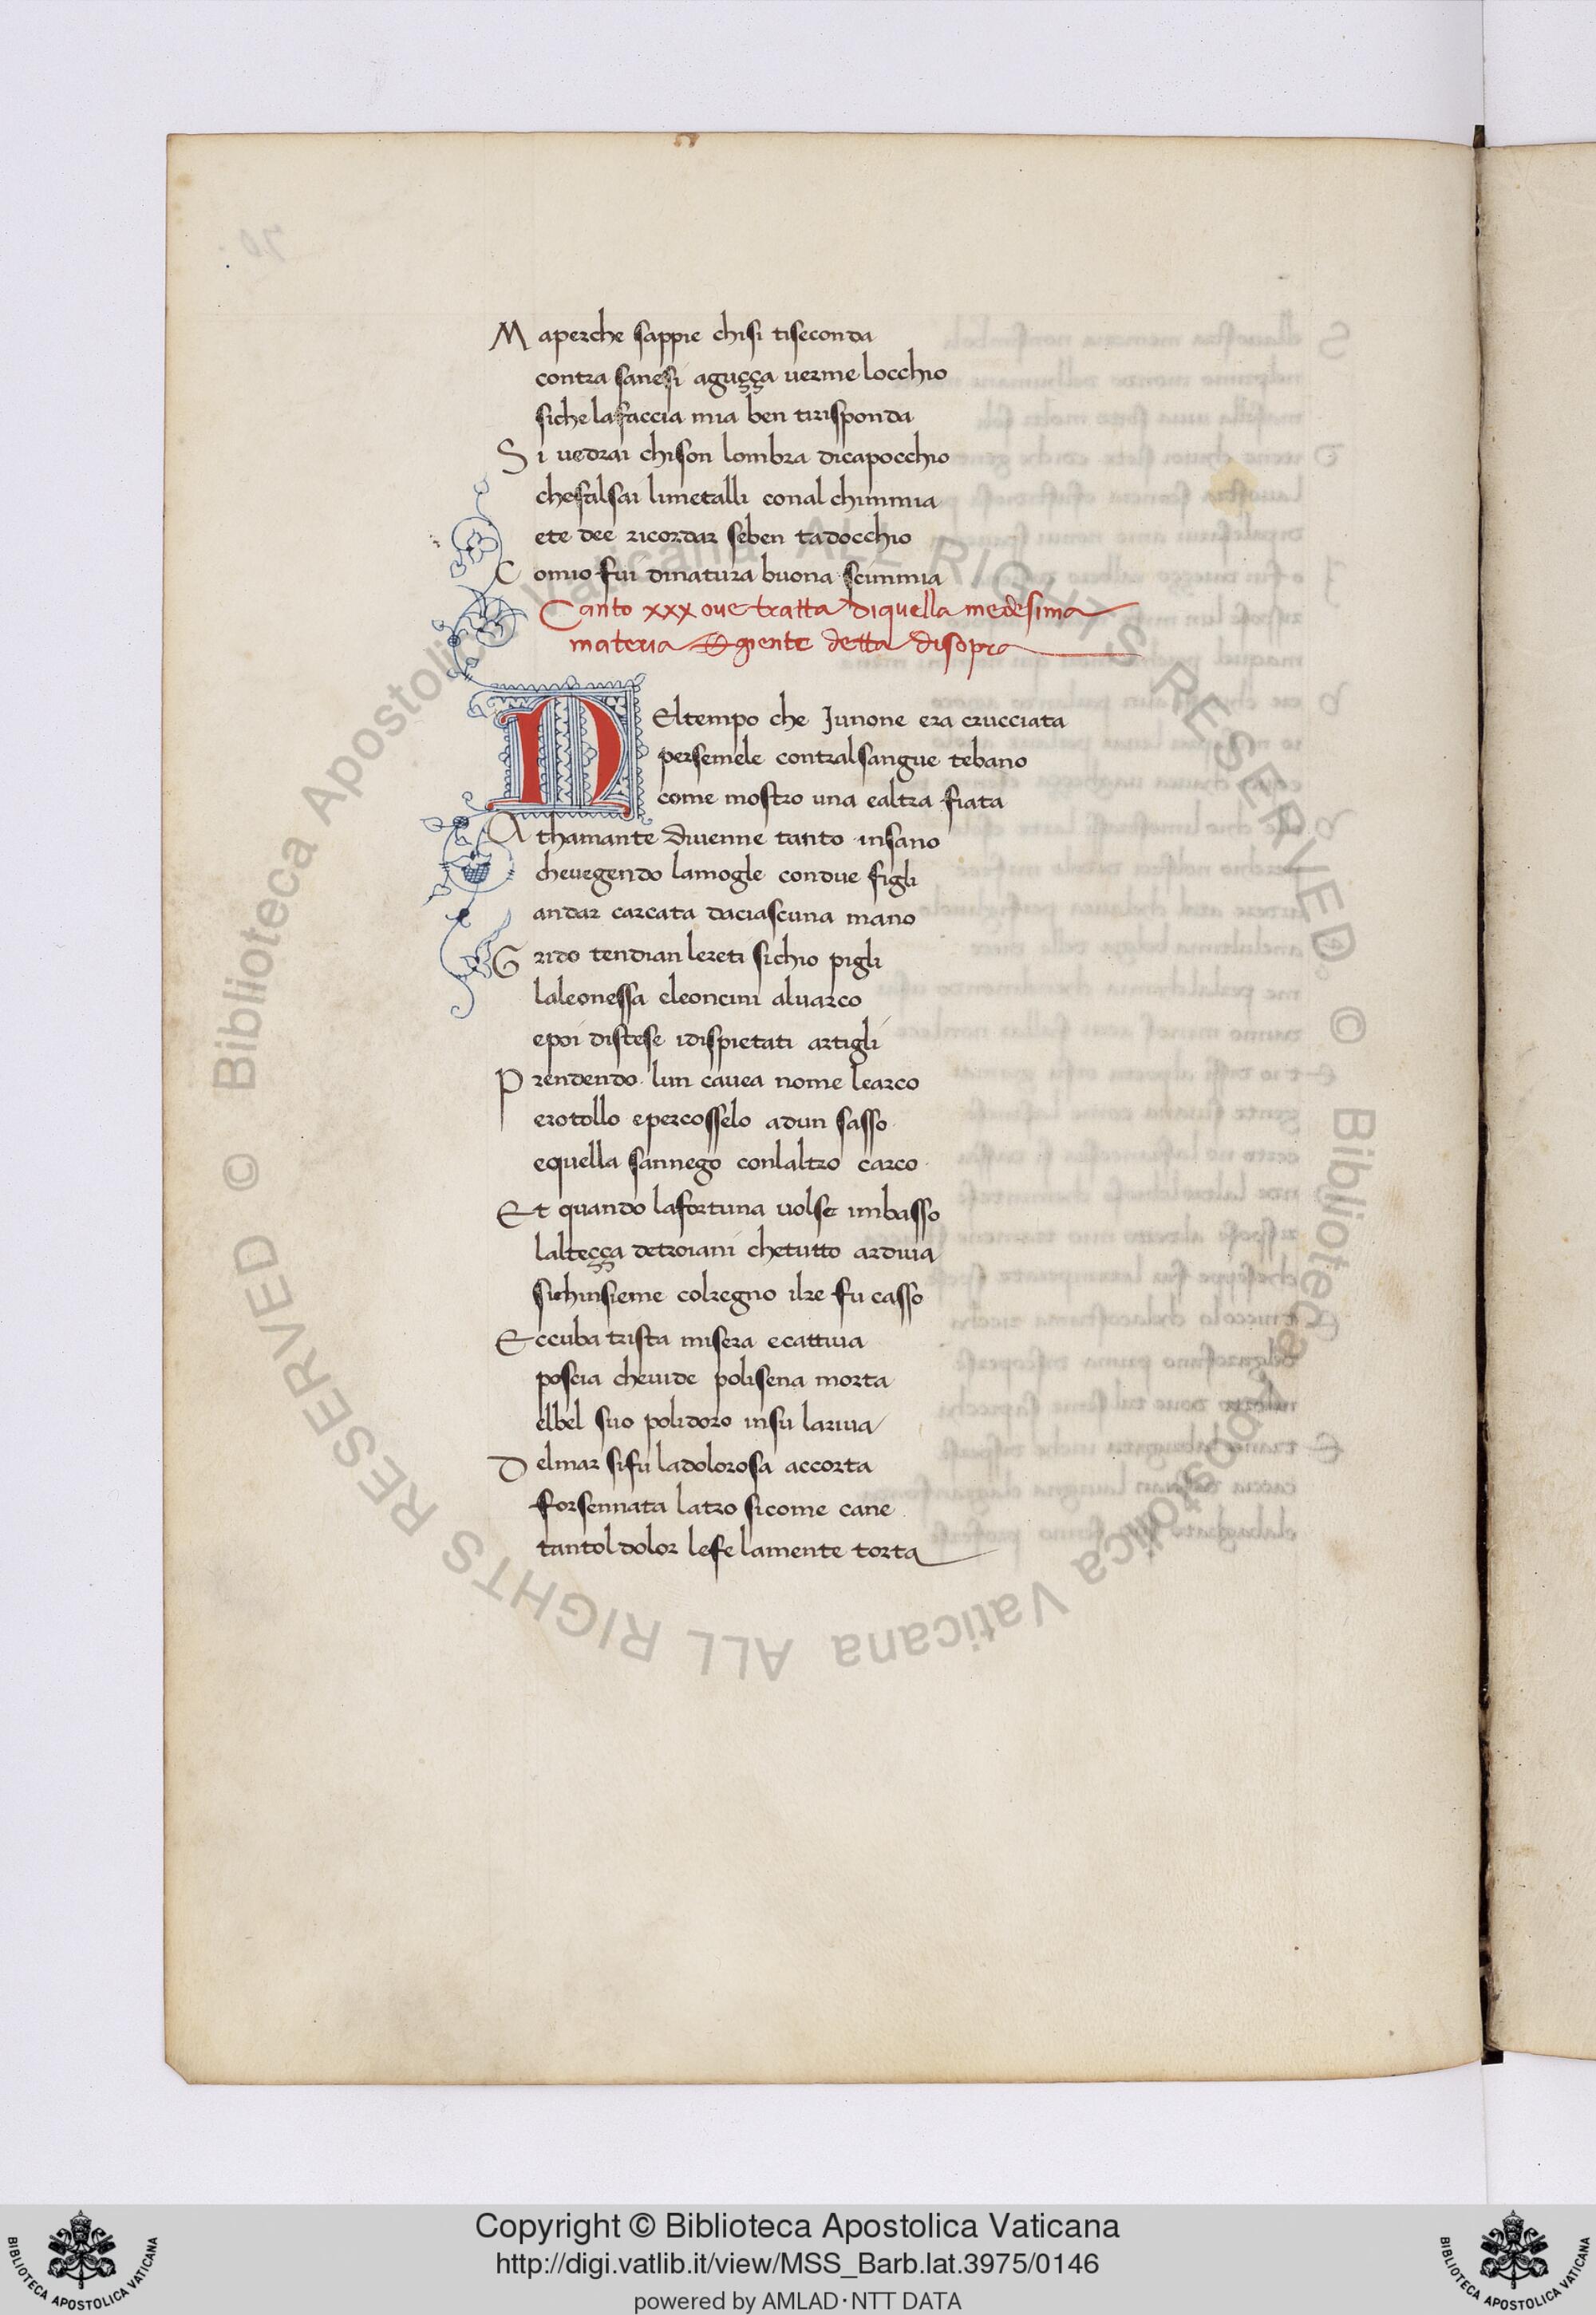 M aperche sappie chisi tiseconda
contra sanesi aguçça uerme locchio
siche lafaccia mia ben tirisponda
S i uedrai chison lombra dicapocchio
chefalsai limetalli conal chimmia
ete dee ricordar seben tadocchio
C omio fui dinatura buona scimmia
Canto xxx oue tratta diquella medesima
materia & gente detta disopra
N Eltempo che Junone era crucciata
persemele contralsangue tebano
come mostro una ealtra fiata
A thamante diuenne tanto insano
cheuegendo lamogle condue figli
andar carcata daciascuna mano
G rido tendian lereti sichio pigli
laleonessa eleoncini aluarco
epoi distese idispietati artigli
P rendendo lun cauea nome learco
erotollo epercosselo adun sasso
equella sannego conlaltro carco
E t quando lafortuna uolse imbasso
laltecça detroiani chetutto ardiuia
sichinsieme colregno ilre fu casso
E ccuba trista misera ecattiuia
poscia cheuide polisena morta
elbel suo polidoro insu lariua
D elmar sifu ladolorosa accorta
forsennata latro sicome cane
tantol dolor lefe lamente torta
Biblioteca Apostolica Vaticana ALL RIGHTS RESERVED ©
Biblioteca Apostolica Vaticana ALL RIGHTS RESERVED ©
BIBLIOTECA APOSTOLICA VATICANA
Copyright © Biblioteca Apostolica Vaticana
http://digi.vatlib.it/view/MSS_Barb.lat.3975/0146
powered by AMLAD·NTT DATA
BIBLIOTECA APOSTOLICA VATICANA